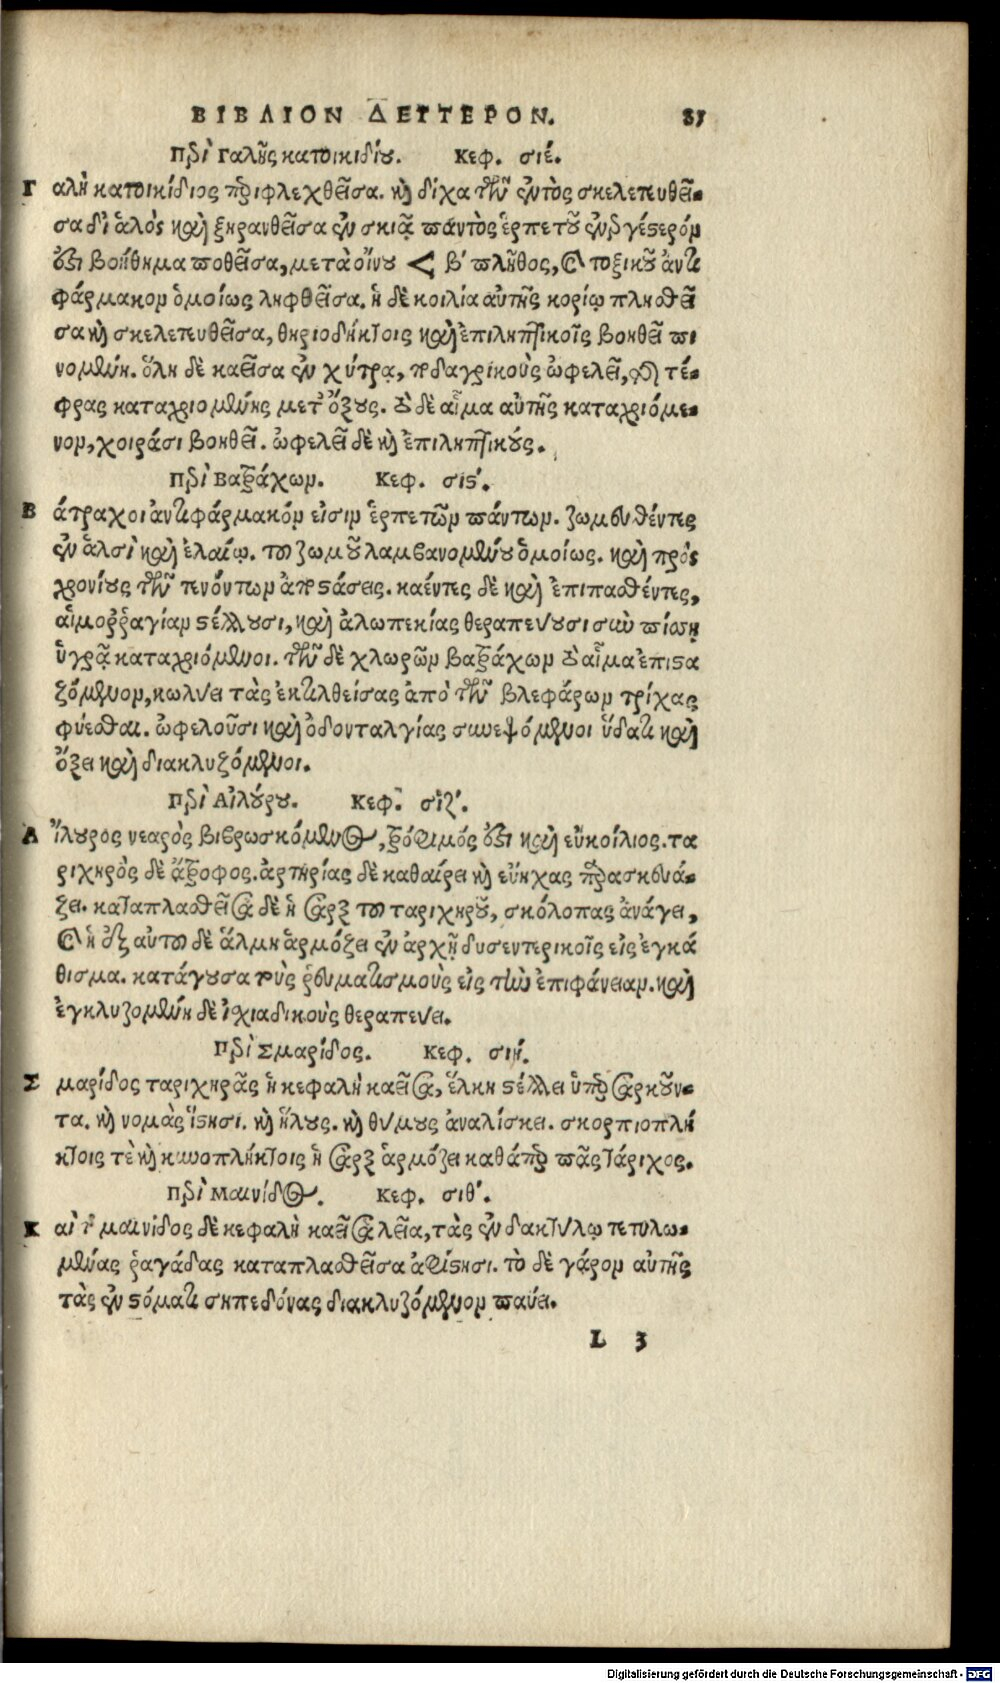 ΒΙΒΛΙΟΝ ΔΕΥΤΕΡΟΝ. 81
Περὶ Γαλῆς κατοικιδίου. Κεφ. σιέ.
Γαλῆ κατοικίδιος περιφλεχθεῖσα. καὶ δίχα τῶν ἐντὸς σκελετευθεῖ-
σα δι' ἁλὸς καὶ ξηρανθεῖσα ἐν σκιᾷ παντὸς ἑρπετοῦ ἐνεργέστερόν
ἐστι βοήθημα ποθεῖσα, μετὰ οἴνου < β' πλῆθος, καὶ τοξικοῦ ἀντι
φάρμακον ὁμοίως ληφθεῖσα. ἡ δὲ κοιλία αὐτῆς κορίῳ πλησθεῖ
σα καὶ σκελετευθεῖσα, θηριοδήκτοις καὶ ἐπιληπτικοῖς βοηθεῖ πι
νομένη. ὅλη δὲ καεῖσα ἐν χύτρᾳ, ποδαγρικοὺς ὠφελεῖ, τέ-
φρας καταχριομένης μετ' ὄξους. τὸ δὲ αἷμα αὐτῆς καταχριόμε-
νον, χοιράσι βοηθεῖ. ὠφελεῖ δὲ καὶ ἐπιληπτικούς.
Περὶ Βατράχων. Κεφ. σιϛ'.
Βάτραχοι ἀντιφάρμακόν εἰσιν ἑρπετῶν πάντων. ζωμευθέντες
ἐν ἁλσὶ καὶ ἐλαίῳ. τοῦ ζωμοῦ λαμβανομένου ὁμοίως. καὶ πρὸς
χρονίους τῶν τενόντων ἀποστάσεις. καέντες δὲ καὶ ἐπιπασθέντες,
αἱμορραγίαν στέλλουσι, καὶ ἀλωπεκίας θεραπεύουσι σὺν πίσσῃ
ὑγρᾷ καταχριόμενοι. τῶν δὲ χλωρῶν βατράχων τὸ αἷμα ἐπιστα
ζόμενον, κωλύει τὰς ἐκτιλθείσας ἀπὸ τῶν βλεφάρων τρίχας
φύεσθαι. ὠφελοῦσι καὶ ὀδονταλγίας συνεψόμενοι ὕδατι καὶ
ὄξει καὶ διακλυζόμενοι.
Περὶ Αἰλούρου. Κεφ. σιζ'.
Αἴλουρος νεαρὸς βιβρωσκόμενος, τρόφιμός ἐστι καὶ εὐκοίλιος. τα
ριχηρὸς δὲ ἄτροφος. ἀρτηρίας δὲ καθαίρει καὶ εὔηχας παρασκευά-
ζει. καταπλασθεῖσα δὲ ἡ σὰρξ τοῦ ταριχηροῦ, σκόλοπας ἀνάγει,
καὶ ἡ ἐξ αὐτοῦ δὲ ἅλμη ἁρμόζει ἐν ἀρχῇ δυσεντερικοῖς εἰς ἐγκά
θισμα. κατάγουσα τοὺς ῥευματισμοὺς εἰς τὴν ἐπιφάνειαν. καὶ
ἐγκλυζομένη δὲ ἰσχιαδικοὺς θεραπεύει.
Περὶ Σμαρίδος. Κεφ. σιή.
Σμαρίδος ταριχηρᾶς ἡ κεφαλὴ καεῖσα, ἕλκη στέλλει ὑπερσαρκοῦν-
τα. καὶ νομὰς ἵστησι. καὶ ἥλους. καὶ θύμους ἀναλίσκει. σκορπιοπλή
κτοις τὲ καὶ κυνοπλήκτοις ἡ σὰρξ ἁρμόζει καθάπερ πᾶς τάριχος.
Περὶ Μαινίδος. Κεφ. σιθ'.
Καὶ τῆς μαινίδος δὲ κεφαλὴ καεῖσα λεῖα, τὰς ἐν δακτύλῳ τετυλω-
μένας ῥαγάδας καταπλασθεῖσα ἀφίστησι. τὸ δὲ γάρον αὐτῆς
τὰς ἐν στόματι σηπεδόνας διακλυζόμενον παύει.
L 3
Digitalisierung gefördert durch die Deutsche Forschungsgemeinschaft - DFG